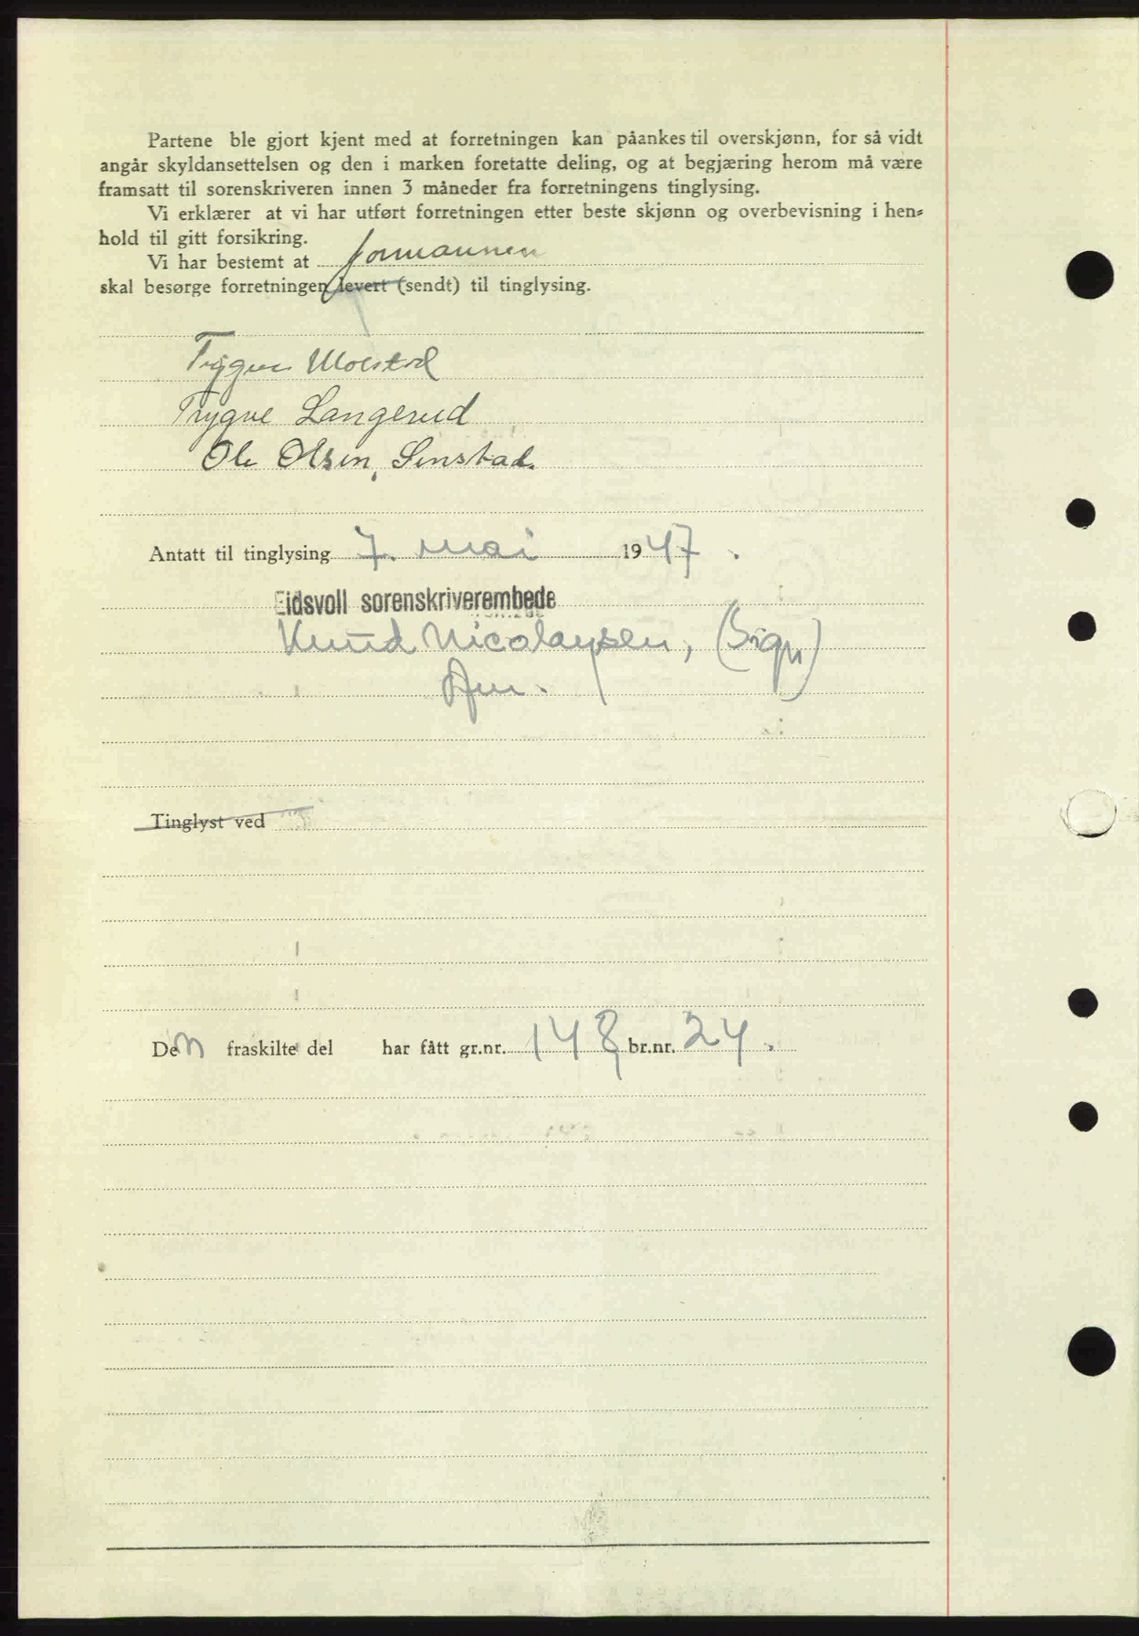 Partene ble gjort kjent med at forretningen kan påankes til overskjønn, for så vidt
angår skyldansettelsen og den i marken foretatte deling, og at begjæring herom må være
framsatt til sorenskriveren innen 3 måneder fra forretningens tinglysing.
Vi erklærer at vi har utført forretningen etter beste skjønn og overbevisning i hen-
hold til gitt forsikring.
Vi har bestemt at formannen
skal besørge forretningen levert (sendt) til tinglysing.
Trygve Molstad
Trygve Langerud
Ole Olsen, Sinstad.
Antatt til tinglysing 7. mai 1947.
Eidsvoll sorenskriverembede
Knud Nicolaysen, (sign)
Tinglyst ved
Den fraskilte del har fått gr.nr. 148 br.nr. 24.